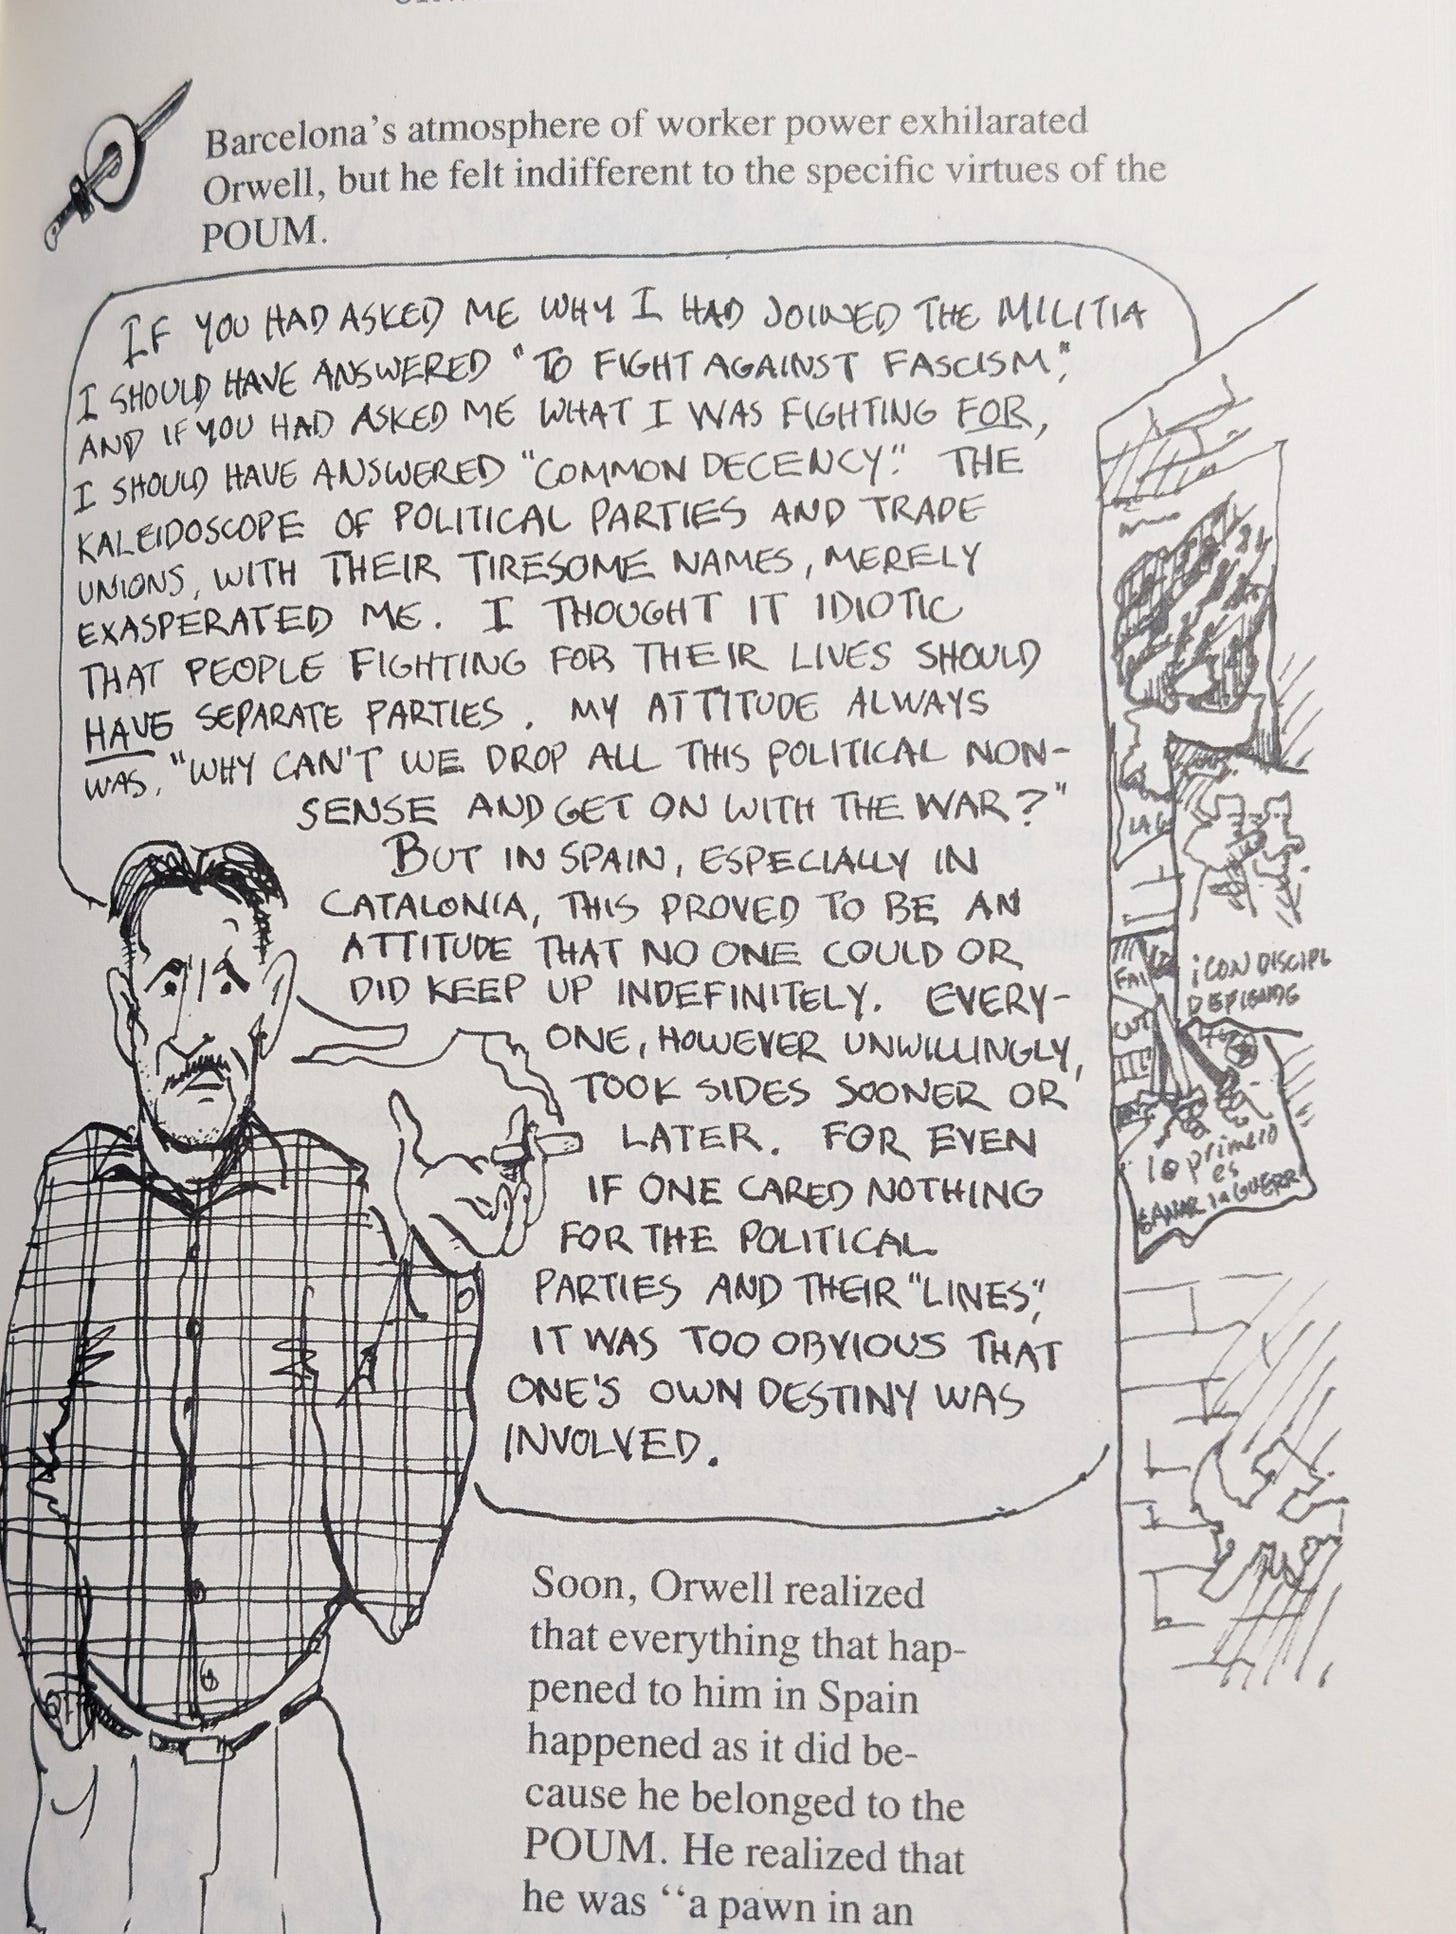 Barcelona's atmosphere of worker power exhilarated
Orwell, but he felt indifferent to the specific virtues of the
POUM.
IF YOU HAD ASKED ME WHY I HAD JOINED THE MILITIA
I SHOULD HAVE ANSWERED "TO FIGHT AGAINST FASCISM",
AND IF YOU HAD ASKED ME WHAT I WAS FIGHTING FOR,
I SHOULD HAVE ANSWERED "COMMON DECENCY". THE
KALEIDOSCOPE OF POLITICAL PARTIES AND TRADE
UNIONS, WITH THEIR TIRESOME NAMES, MERELY
EXASPERATED ME. I THOUGHT IT IDIOTIC
THAT PEOPLE FIGHTING FOR THEIR LIVES SHOULD
HAVE SEPARATE PARTIES. MY ATTITUDE ALWAYS
WAS, "WHY CAN'T WE DROP ALL THIS POLITICAL NON-
SENSE AND GET ON WITH THE WAR?"
BUT IN SPAIN, ESPECIALLY IN
CATALONIA, THIS PROVED TO BE AN
ATTITUDE THAT NO ONE COULD OR
DID KEEP UP INDEFINITELY. EVERY-
ONE, HOWEVER UNWILLINGLY,
TOOK SIDES SOONER OR
LATER. FOR EVEN
IF ONE CARED NOTHING
FOR THE POLITICAL
PARTIES AND THEIR "LINES",
IT WAS TOO OBVIOUS THAT
ONE'S OWN DESTINY WAS
INVOLVED.
FAI
¡CON DISCIPL
lo primero
es
GANAR la GUERRA
Soon, Orwell realized
that everything that hap-
pened to him in Spain
happened as it did be-
cause he belonged to the
POUM. He realized that
he was "a pawn in an